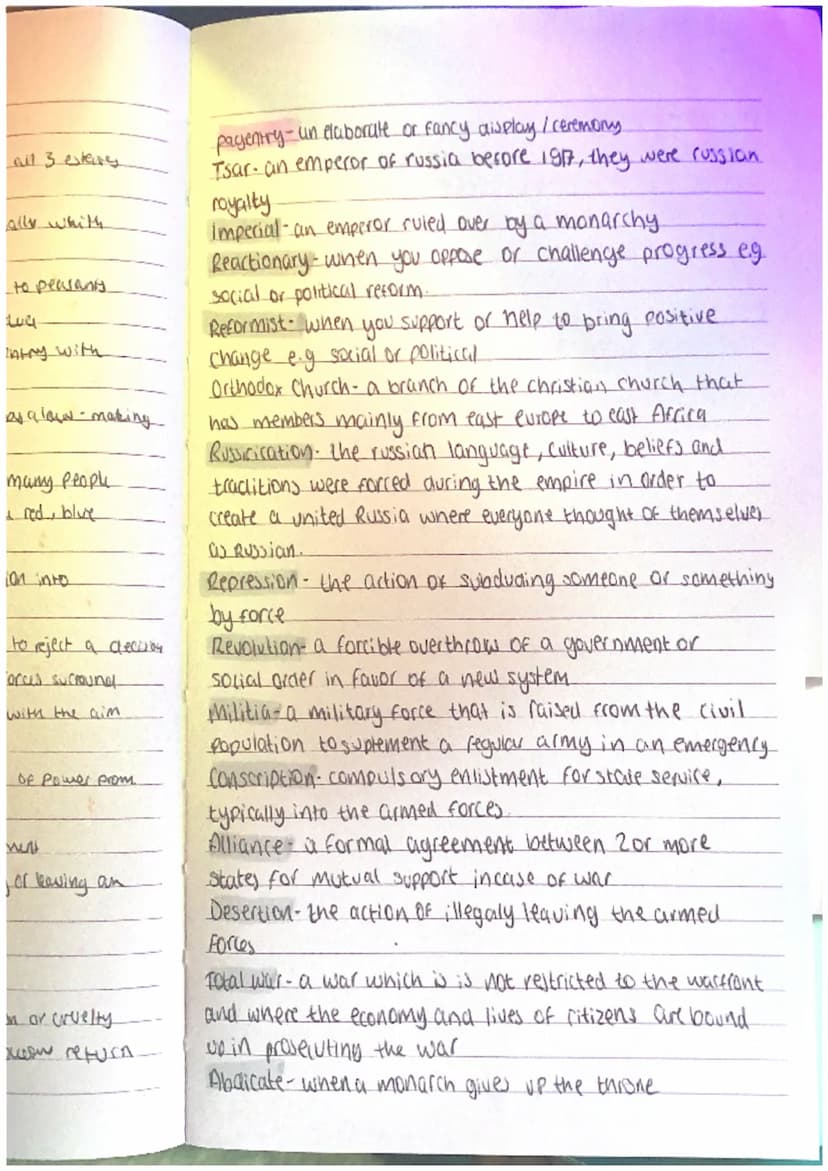 all 3 estates
ally with
to peasants
with
as a law-making
many people
red, blue
ion into
to reject a decision
forces surround
with the aim
of power from
, or leaving an
or cruelty
return
pagentry- un elaborate or fancy display / ceremony
Tsar- an emperor of russia before 1917, they were russian
royalty
Imperial- an emperor ruled over by a monarchy
Reactionary- when you oppose or challenge progress e.g
social or political reform.
Reformist- when you support or help to bring positive
change e.g social or political
Orthodox Church- a branch of the christian church that
has members mainly from east europe to east Africa
Russification- the russian language, culture, beliefs and
traditions were forced during the empire in order to
create a united Russia where everyone thought of themselves
as Russian.
Repression- the action of subduding someone or something
by force
Revolution- a forcible overthrow of a government or
social order in favor of a new system
Militia- a military force that is raised from the civil
population to suplement a regular army in an emergency
Conscription- compulsory enlistment for state service,
typically into the armed forces.
Alliance- a formal agreement between 2 or more
states for mutual support incase of war
Desertion- the action of illegaly leaving the armed
forces
Total war- a war which is is not restricted to the warfront
and where the economy and lives of citizens are bound
up in prosecuting the war
Abdicate- when a monarch gives up the throne